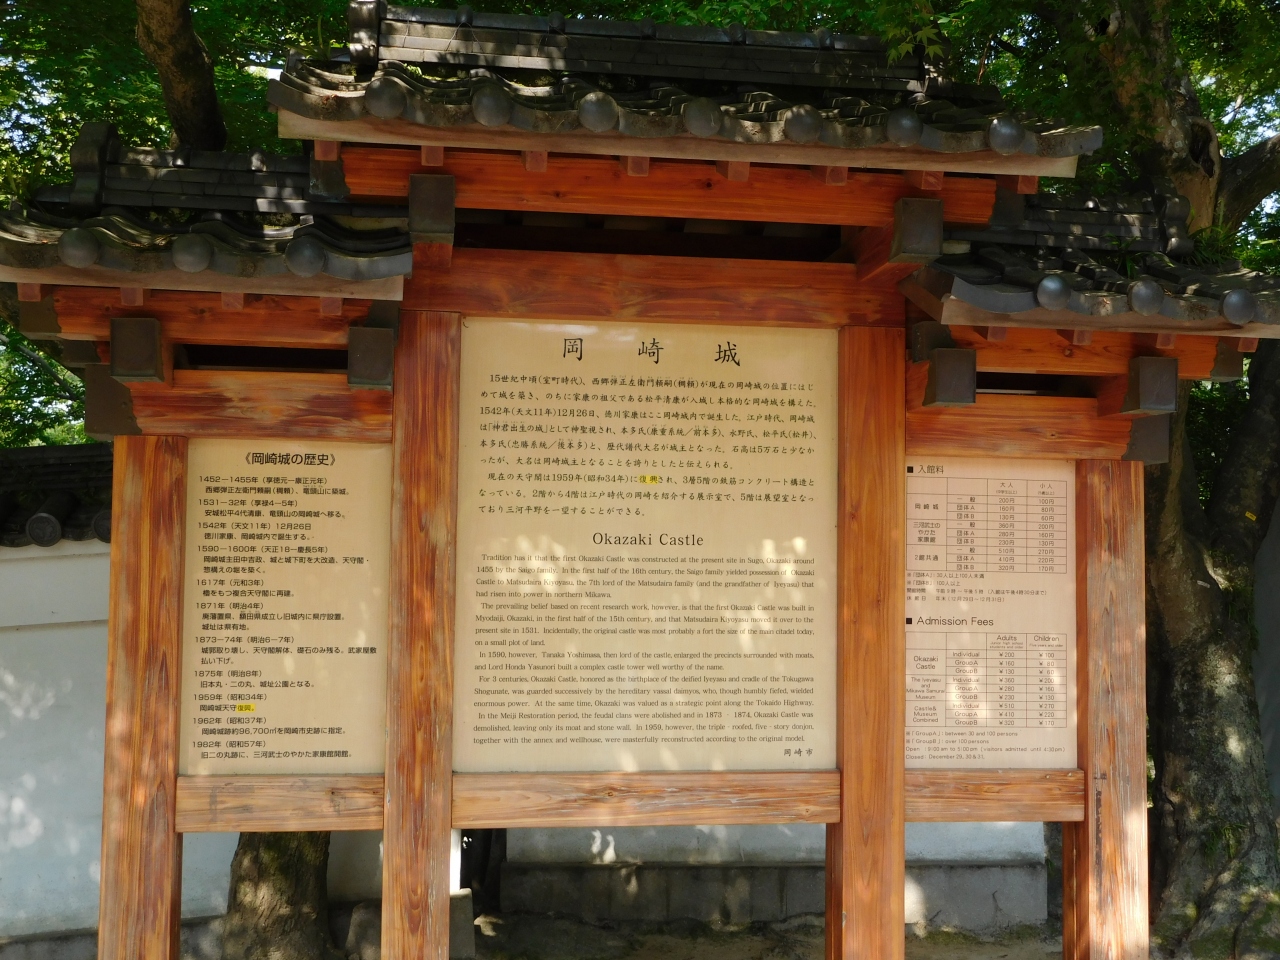 《岡崎城の歴史》
1452－1455年（享徳元－康正元年）
西郷弾正左衛門頼嗣(稠頼)、竜頭山に築城。
1531－32年（享禄4－5年）
安城松平4代清康、竜頭山の岡崎城へ移る。
1542年（天文11年）12月26日
徳川家康、岡崎城内で誕生する。
1590－1600年（天正18－慶長5年）
岡崎城主田中吉政、城と城下町を大改造、天守閣・
惣構えの堀を築く。
1617年（元和3年）
櫓をもつ複合天守閣に再建。
1871年（明治4年）
廃藩置県、額田県成立し旧城内に県庁設置。
城址は県有地。
1873－74年（明治6－7年）
城郭取り壊し、天守閣解体、礎石のみ残る。武家屋敷
払い下げ。
1875年（明治8年）
旧本丸・二の丸、城址公園となる。
1959年（昭和34年）
岡崎城天守復興。
1962年（昭和37年）
岡崎城跡約96,700㎡を岡崎市史跡に指定。
1982年（昭和57年）
旧二の丸跡に、三河武士のやかた家康館開館。
岡崎城
15世紀中頃(室町時代)、西郷弾正左衛門頼嗣(稠頼)が現在の岡崎城の位置にはじ
めて城を築き、のちに家康の祖父である松平清康が入城し本格的な岡崎城を構えた。
1542年(天文11年)12月26日、徳川家康はここ岡崎城内で誕生した。江戸時代、岡崎城
は「神君出生の城」として神聖視され、本多氏(康重系統／前本多)、水野氏、松平氏(松井)、
本多氏(忠勝系統／後本多)と、歴代譜代大名が城主となった。石高は5万石と少なか
ったが、大名は岡崎城主となることを誇りとしたと伝えられる。
現在の天守閣は1959年(昭和34年)に復興され、3層5階の鉄筋コンクリート構造と
なっている。2階から4階は江戸時代の岡崎を紹介する展示室で、5階は展望室となっ
ており三河平野を一望することができる。
Okazaki Castle
Tradition has it that the first Okazaki Castle was constructed at the present site in Sugo, Okazaki around
1455 by the Saigo family. In the first half of the 16th century, the Saigo family yielded possession of Okazaki
Castle to Matsudaira Kiyoyasu, the 7th lord of the Matsudaira family (and the grandfather of Iyeyasu) that
had risen into power in northern Mikawa.
The prevailing belief based on recent research work, however, is that the first Okazaki Castle was built in
Myodaiji, Okazaki, in the first half of the 15th century, and that Matsudaira Kiyoyasu moved it over to the
present site in 1531. Incidentally, the original castle was most probably a fort the size of the main citadel today,
on a small plot of land.
In 1590, however, Tanaka Yoshimasa, then lord of the castle, enlarged the precincts surrounded with moats,
and Lord Honda Yasunori built a complex castle tower well worthy of the name.
For 3 centuries, Okazaki Castle, honored as the birthplace of the deified Iyeyasu and cradle of the Tokugawa
Shogunate, was guarded successively by the hereditary vassal daimyos, who, though humbly fiefed, wielded
enormous power. At the same time, Okazaki was valued as a strategic point along the Tokaido Highway.
In the Meiji Restoration period, the feudal clans were abolished and in 1873 - 1874, Okazaki Castle was
demolished, leaving only its moat and stone wall. In 1959, however, the triple - roofed, five - story donjon,
together with the annex and wellhouse, were masterfully reconstructed according to the original model.
岡崎市
■ 入館料
大人 小人
岡崎城 一般 200円 100円
団体A 160円 80円
団体B 130円 60円
三河武士のやかた家康館 一般 360円 200円
団体A 280円 160円
団体B 230円 130円
2館共通 一般 510円 270円
団体A 410円 220円
団体B 320円 170円
■ Admission Fees
Adults Children
Okazaki Castle Individual ¥ 200 ¥ 100
Group A ¥ 160 ¥ 80
Group B ¥ 130 ¥ 60
The Ieyasu and Mikawa Samurai Museum Individual ¥ 360 ¥ 200
Group A ¥ 280 ¥ 160
Group B ¥ 230 ¥ 130
Castle & Museum Combined Individual ¥ 510 ¥ 270
Group A ¥ 410 ¥ 220
Group B ¥ 320 ¥ 170
※「Group A」: between 30 and 100 persons
※「Group B」: over 100 persons
Open : 9:00 am to 5:00 pm (visitors admitted until 4:30 pm)
Closed : December 29, 30 & 31